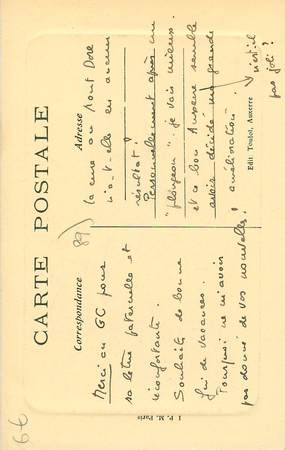 CARTE POSTALE
Correspondance
Adresse
89)
Merci au GC pour
sa lettre paternelle et
réconfortante.
Souhaits de bonne
fin de vacances.
Pourquoi ne m'avoir
pas donné de vos nouvelles!
La cure au Mont Dore
n'a-t-elle eu aucun
résultat?
Personnellement après un
"plongeon" je vais mieux.
et ce bon Auxerre semble
avoir décidé une grande
amélioration.
n'est-il
pas joli?
Edit Toulot, Auxerre
I P. M. Paris
66